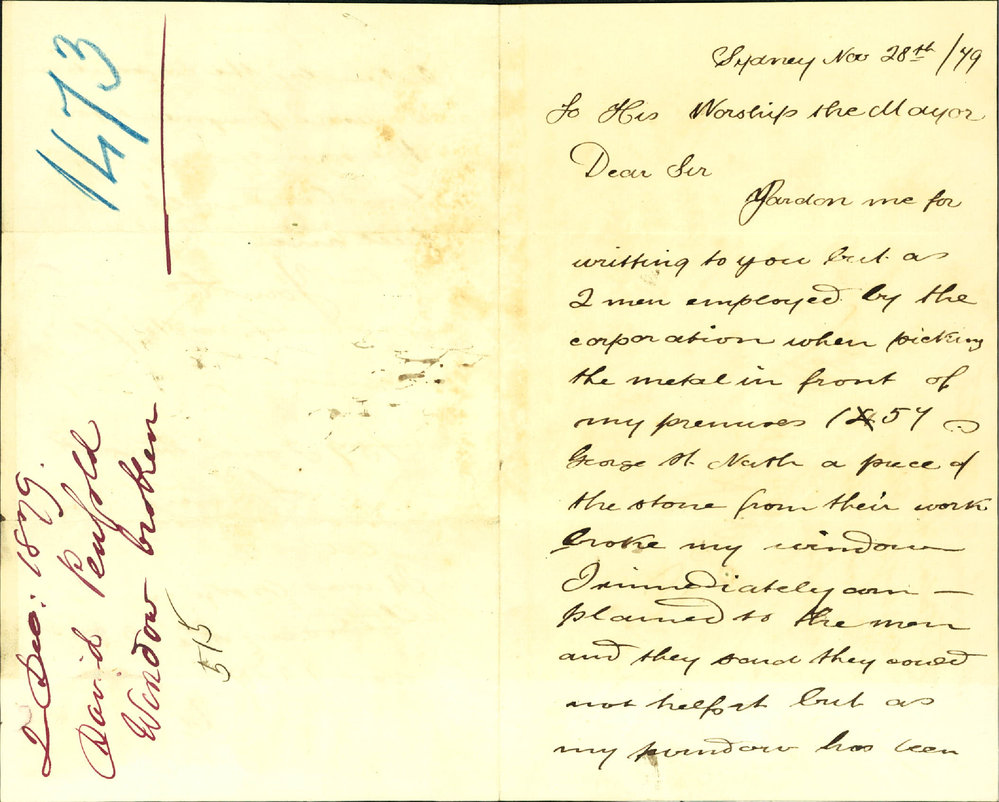 1473
2 Dec: 1879.
David Penfold
Window broken
515
Sydney Nov 28th /79
To His Worship the Mayor
Dear Sir
Pardon me for
writting to you but as
2 men employed by the
corporation when picking
the metal in front of
my premises 1457
George St. North a piece of
the stone from their work
broke my window
I immediately com –
plained to the men
and they said they could
not help it but as
my window has been